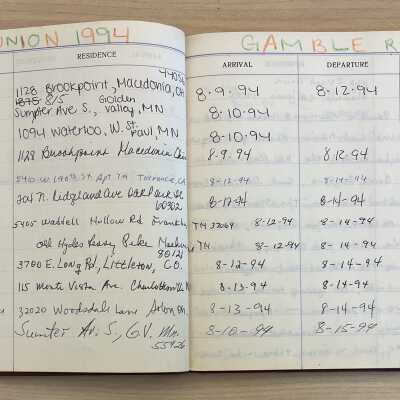 UNION 1994
RESIDENCE
44056
1128 Brookpoint, Macedonia, OH
1875 8/5 Golden
Sumpter Ave S., Valley, MN
1094 Waterloo, W. St. Paul, MN
1128 Brookpoint Macedonia Ohio
5410 W. 190th St. Apt Torrance, CA
301 N. Ridgland Ave Oak Park Il
60302
5405 Waddell Hollow Rd Franklin
Old Hydes Ferry Pike
80121
3700 E. Long Rd, Littleton, CO.
115 Monte Vista Ave. Charlottesville
32020 Woodsdale Lane Solon OH
Sumter Av. S., G.V. Mn.
55426
GAMBLE R
ARRIVAL DEPARTURE
8-9-94 8-12-94
8-10-94
8-10-94
8-9-94 8-12-94
8-12-94 8-14-94
8-12-94 8-14-94
TN 37064 8-12-94 8-14-94
TN 8-12-94 8-14-94
8-12-94 8-14-94
8-13-94 8-14-94
8-13-94 8-14-94
8-10-94 8-15-94